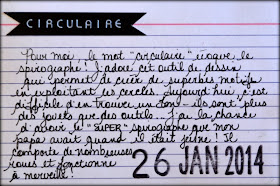 CIRCULAIRE
Pour moi, le mot "circulaire" évoque le
spirographe! J'adore cet outil de dessin
qui permet de créer de superbes motifs
en exploitant les cercles. Aujourd'hui, c'est
difficile d'en trouver un bon - ils sont plus
des jouets que des outils... J'ai la chance
d'avoir le "SUPER" spirographe que mon
papa avait quand il était jeune! Il
comporte de nombreuses
roues et fonctionne
à merveille!
26 JAN 2014